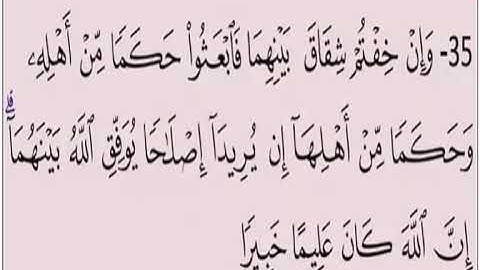 35- وَإِنْ خِفْتُمْ شِقَاقَ بَيْنِهِمَا فَٱبْعَثُوا۟ حَكَمًا مِّنْ أَهْلِهِۦ
وَحَكَمًا مِّنْ أَهْلِهَآ إِن يُرِيدَآ إِصْلَٰحًا يُوَفِّقِ ٱللَّهُ بَيْنَهُمَآ ۗ
إِنَّ ٱللَّهَ كَانَ عَلِيمًا خَبِيرًا